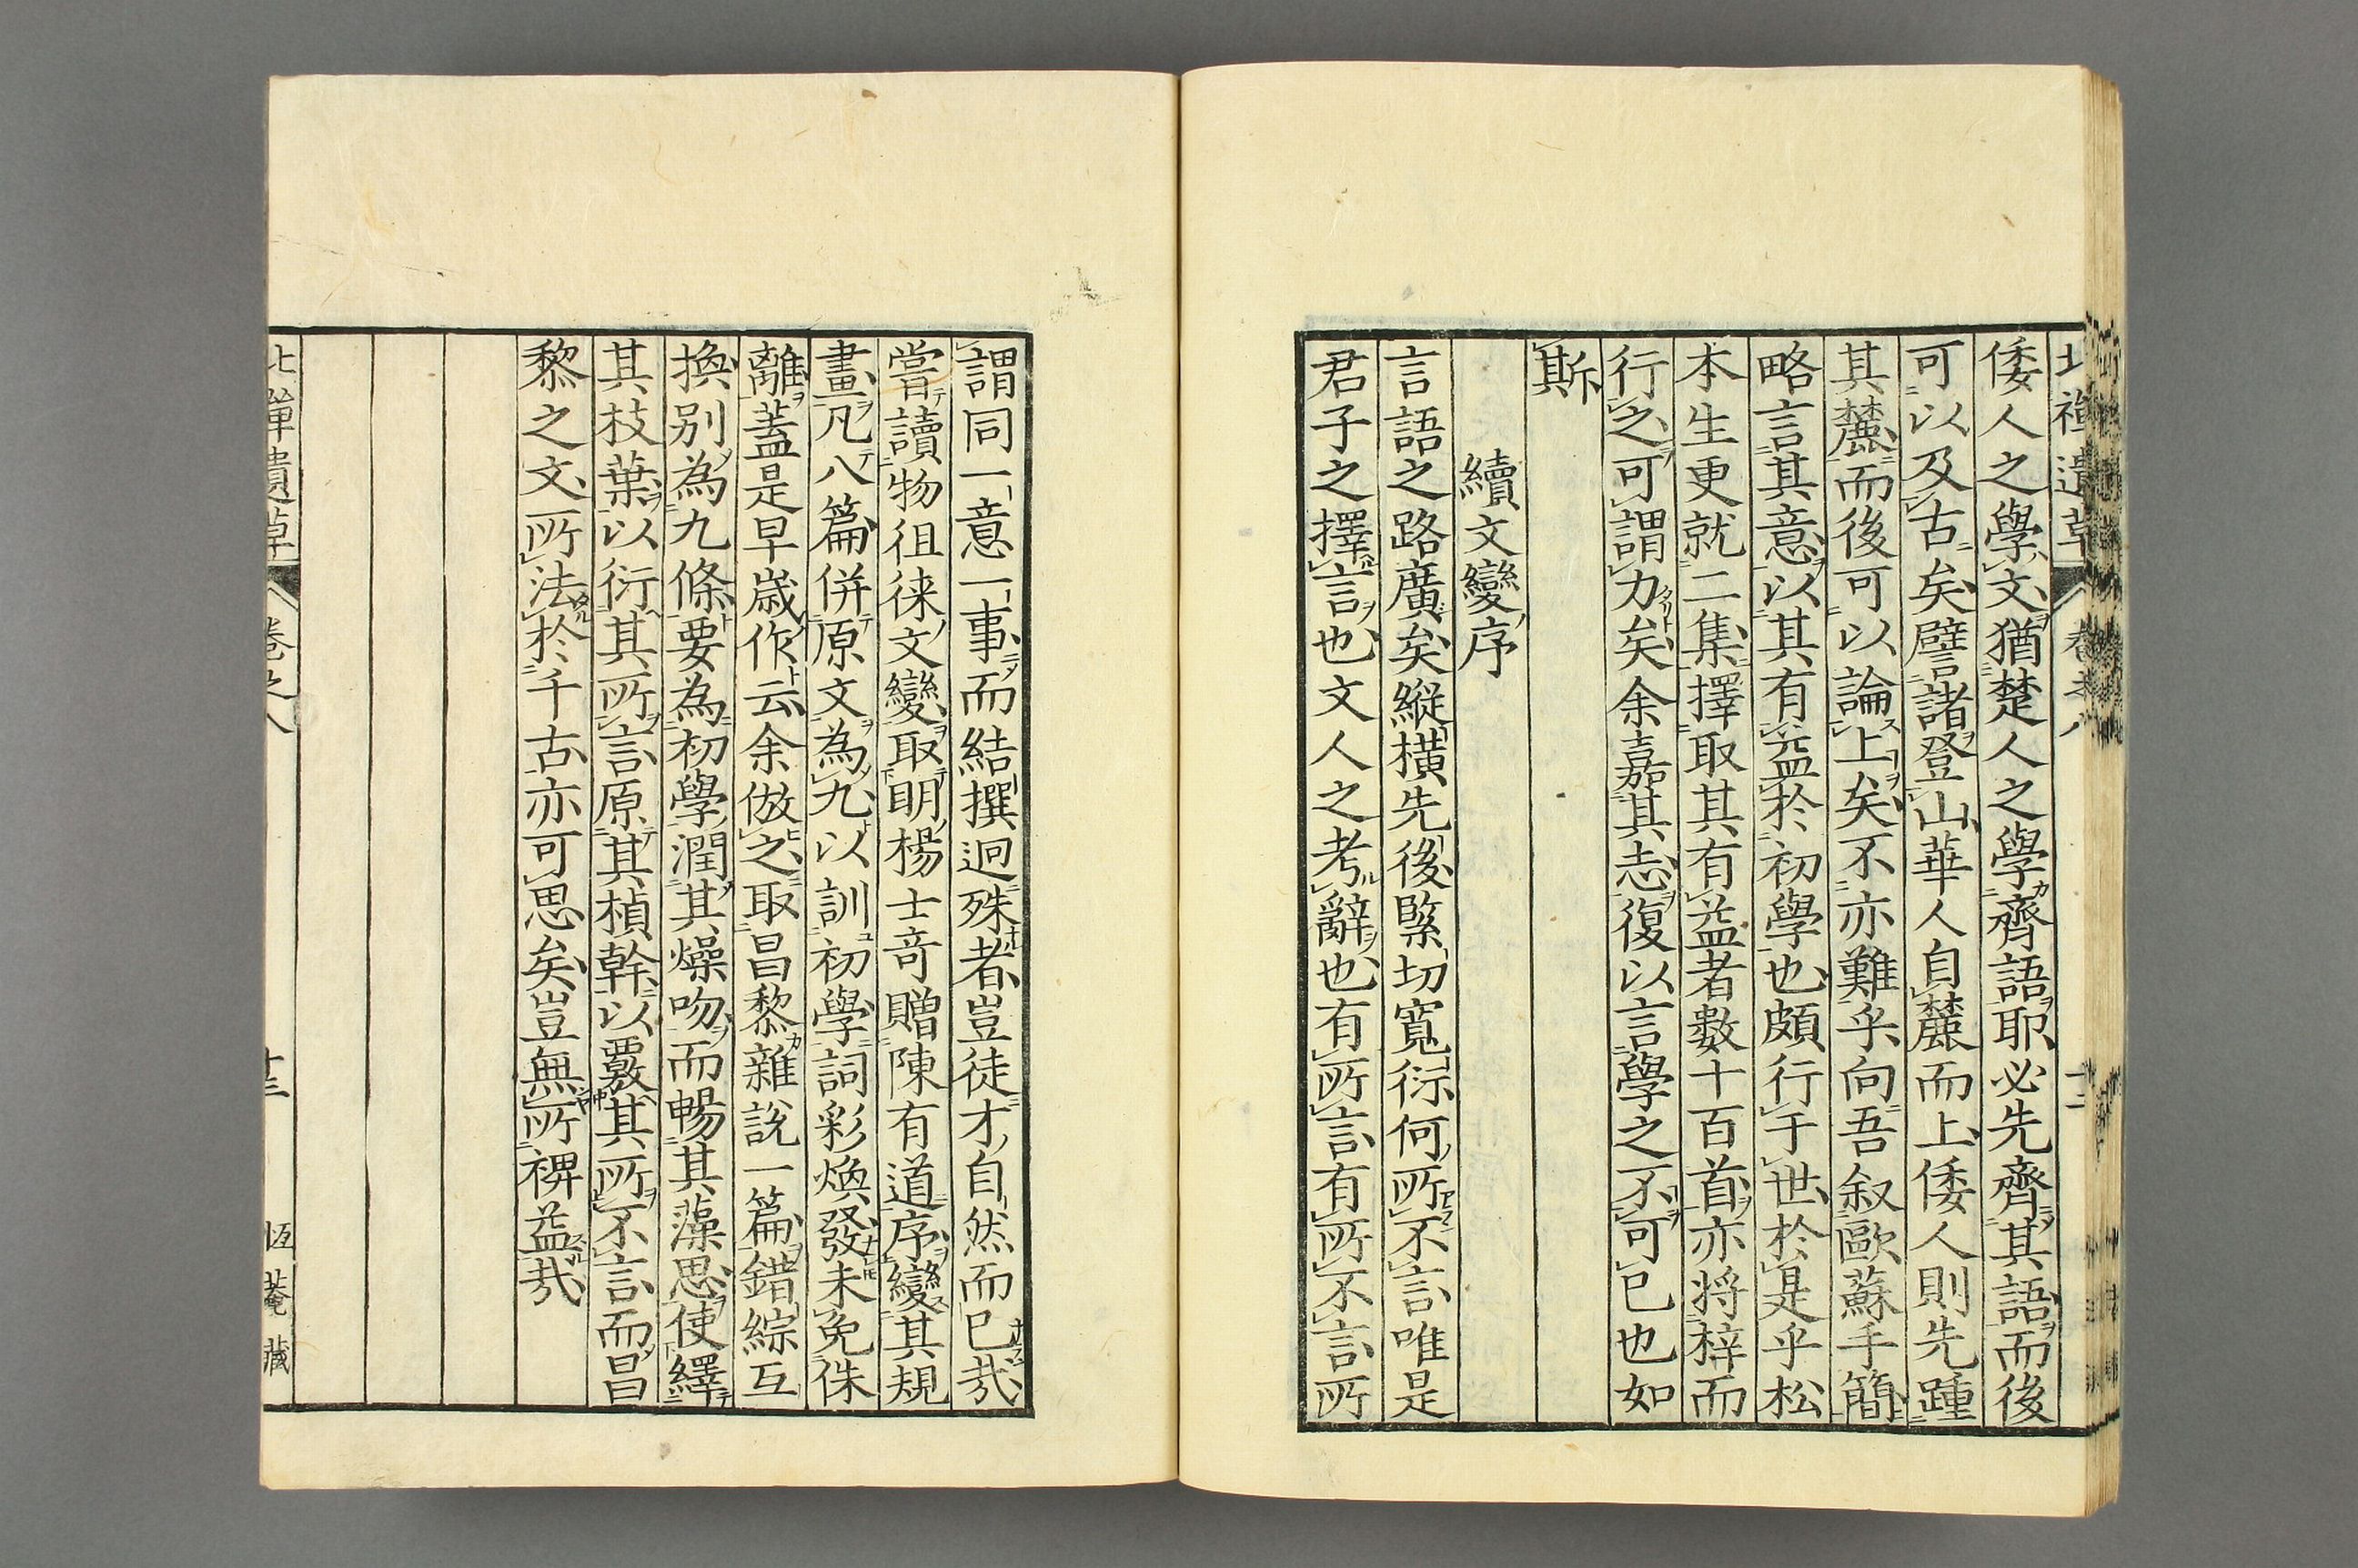 北禪遺草
卷之八
十二
倭人之學文猶楚人之學齊語耶必先齊其語而後
可以及古矣譬諸登山華人自麓而上倭人則先踵
其麓而後可以論上矣不亦難乎向吾叙歐蘇手簡
略言其意以其有益於初學也頗行于世於是乎松
本生更就二集擇取其有益者數十百首亦将梓而
行之可謂力矣余嘉其志復以言學之不可已也如
斯
續文變序
言語之路廣矣縱橫先後緊切寬衍何所不言唯是
君子之擇言也文人之考辭也有所言有所不言所
謂同一意一事而結撰迥殊者豈徒才自然而已哉
嘗讀物徂徠文變取明楊士奇贈陳有道序變其規
畫凡八篇併原文為九以訓初學詞彩煥發未免侏
離蓋是早歲作云余倣之取昌黎雜説一篇錯綜互
換別為九條要為初學潤其燥吻而暢其藻思使繹
其枝葉以衍其所言原其楨幹以覈其所不言而昌
黎之文所法於千古亦可思矣豈無所裨益哉
北禪遺草
卷之八
十三
恆菴藏